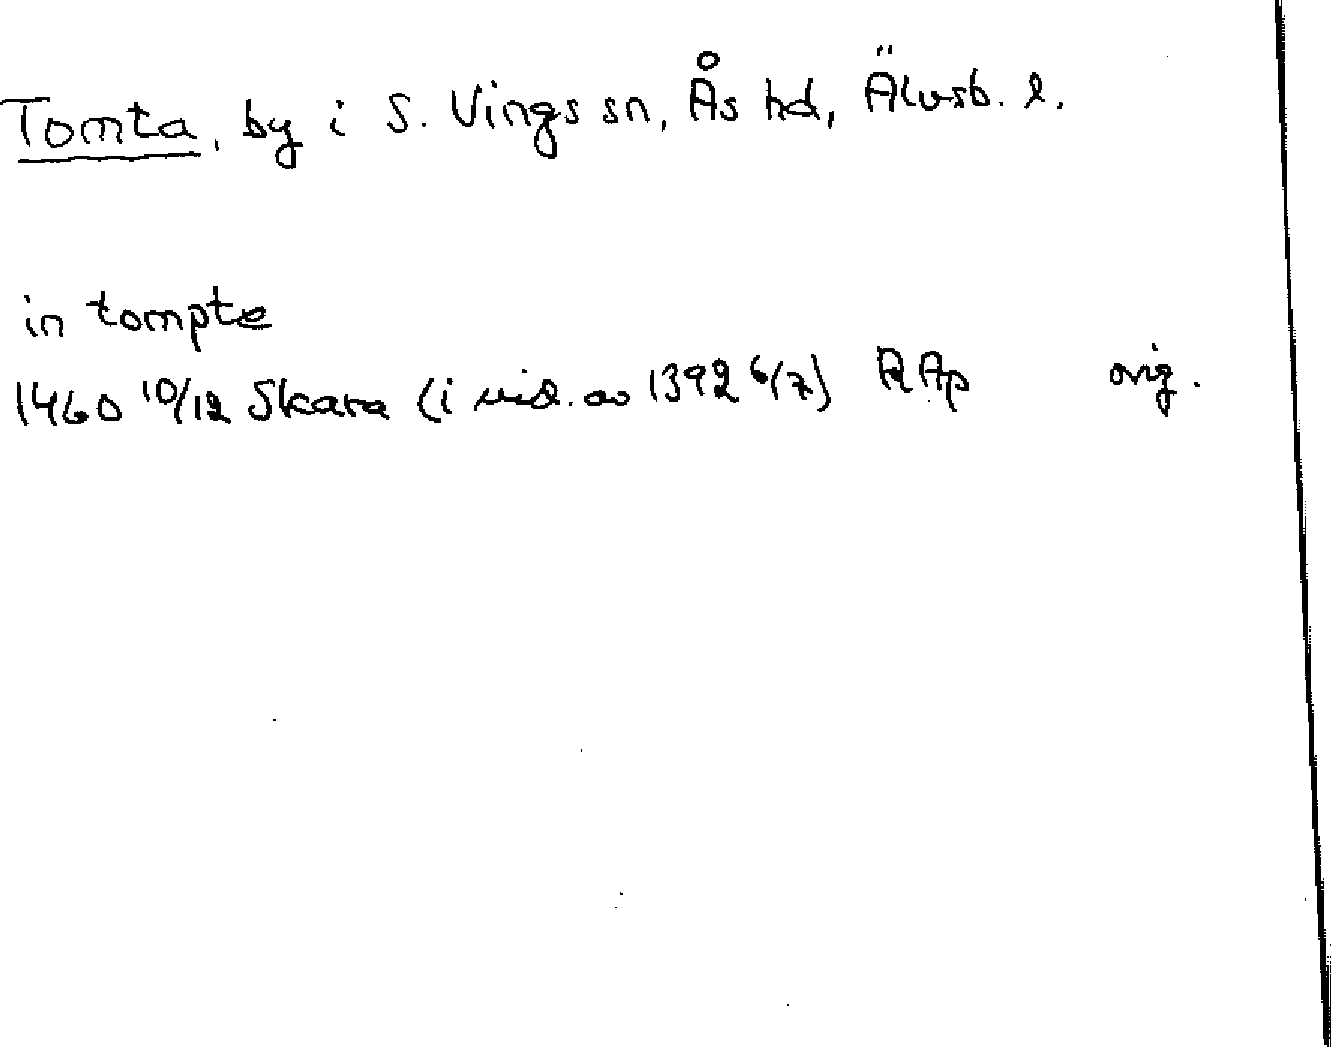 Tomta, by i S. Vings sn, Ås hd, Älvsb. l.
in tompte
1460 10/12 Skara (i vid. av 1392 6/7) RAp orig.